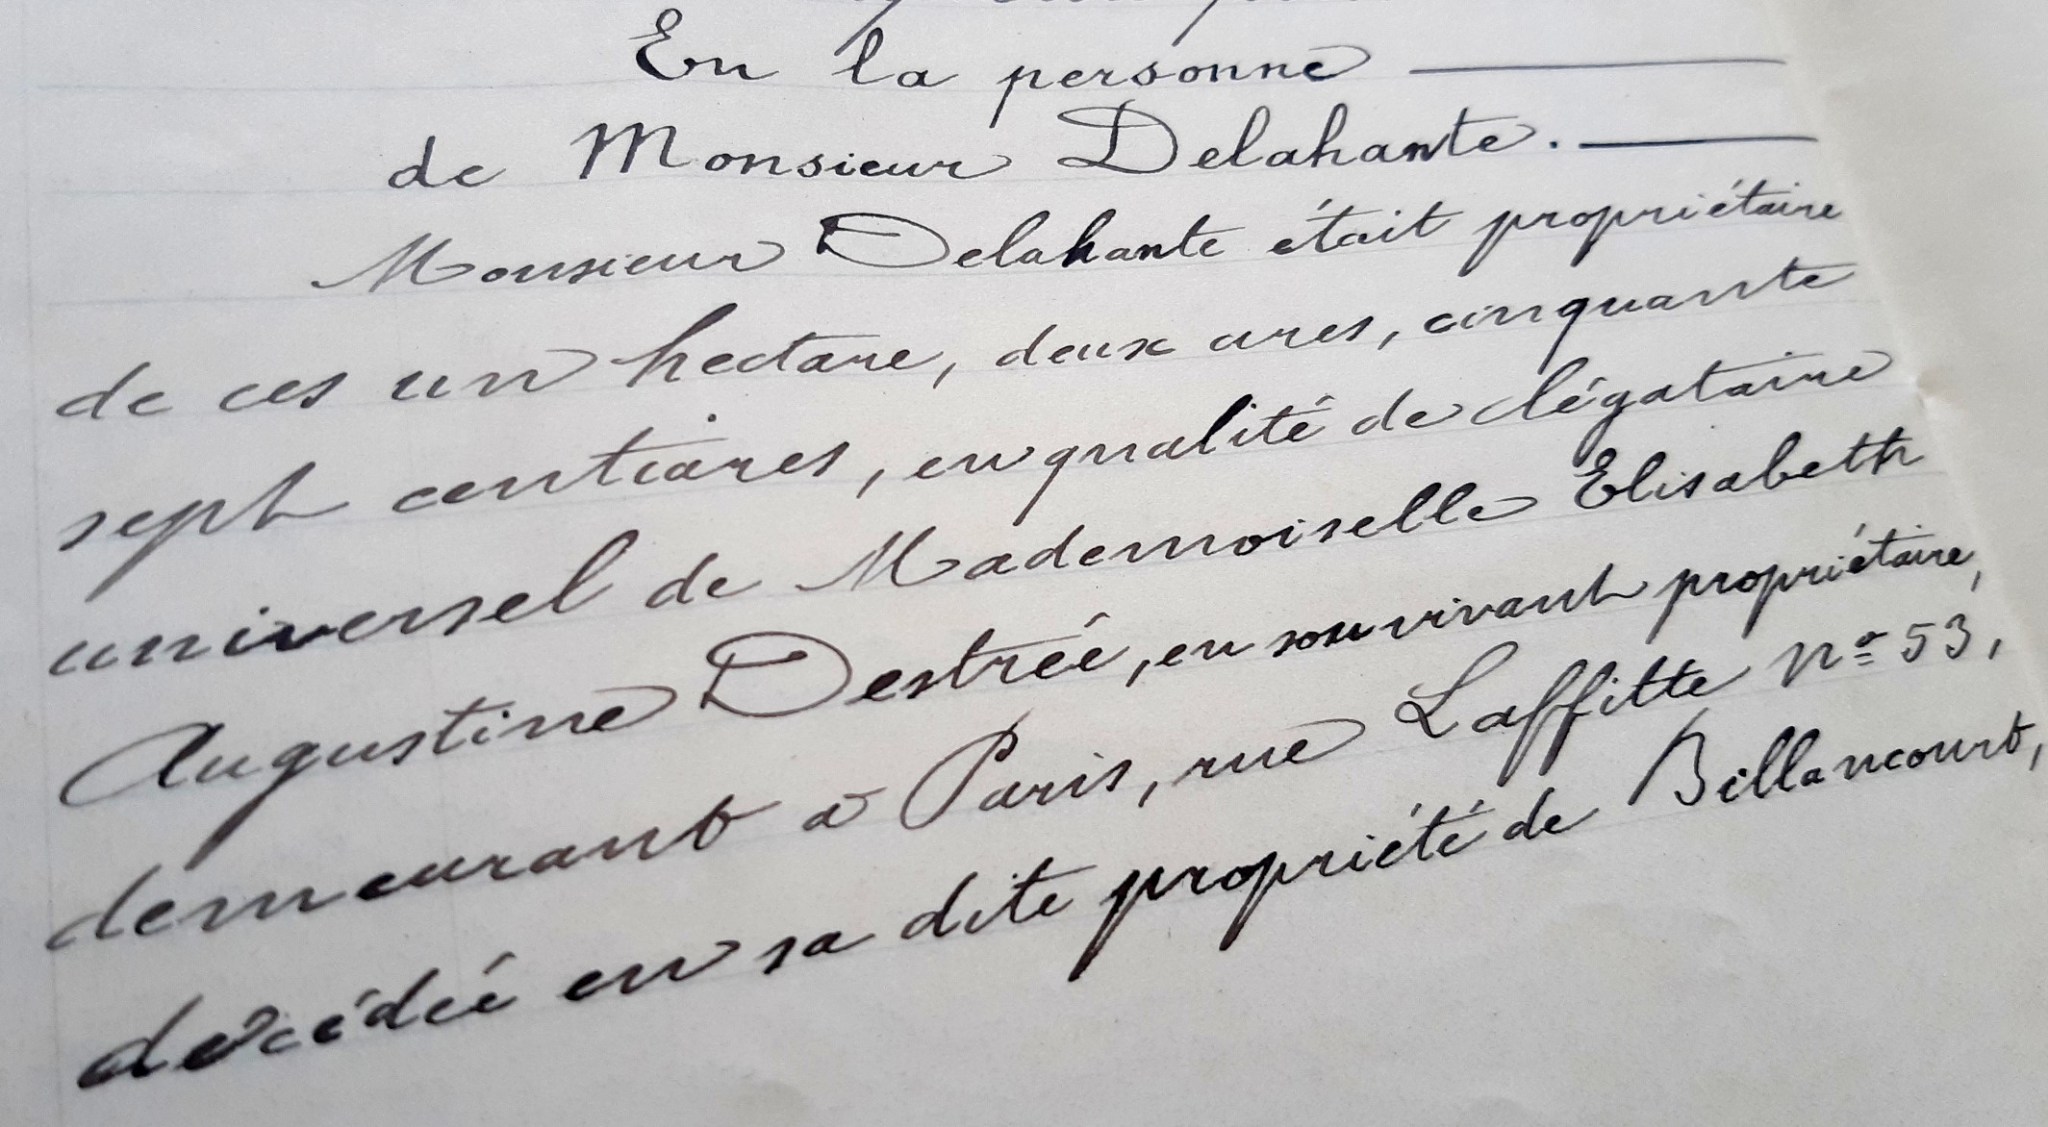 En la personne
de Monsieur Delahante.
Monsieur Delahante était propriétaire
de ces un hectare, deux ares, cinquante
sept centiares, en qualité de légataire
universel de Mademoiselle Elisabeth
Augustine Destrée, en son vivant propriétaire,
demeurant à Paris, rue Laffitte no 53,
décédée en sa dite propriété de Billancourt,